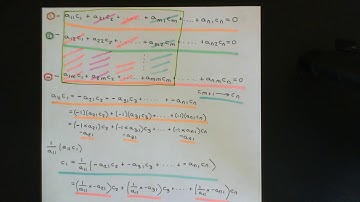 ① = a₁₁c₁ + a₂₁c₂ + ..... + aₘ₁cₘ + ..... + aₙ₁cₙ = 0
② = a₁₂c₁ + a₂₂c₂ + ..... + aₘ₂cₘ + ..... + aₙ₂cₙ = 0
ⓜ = a₁ₘc₁ + a₂ₘc₂ + ..... + aₘₘcₘ + ..... + aₙₘcₙ = 0
cₘ₊₁ → cₙ
a₁₁c₁ = -a₂₁c₂ + -a₃₁c₃ + ..... + -aₙ₁cₙ
= (-1)(a₂₁)c₂ + (-1)(a₃₁)c₃ + ..... + (-1)(aₙ₁)cₙ
= (-1×a₂₁)c₂ + (-1×a₃₁)c₃ + ..... + (-1×aₙ₁)cₙ
-a₂₁ -a₃₁ -aₙ₁
1/a₁₁ (a₁₁c₁)
c₁ = 1/a₁₁ (-a₂₁c₂ + -a₃₁c₃ + ..... + -aₙ₁cₙ)
= (1/a₁₁ × -a₂₁)c₂ + (1/a₁₁ × -a₃₁)c₃ + ..... + (1/a₁₁ × -aₙ₁)cₙ